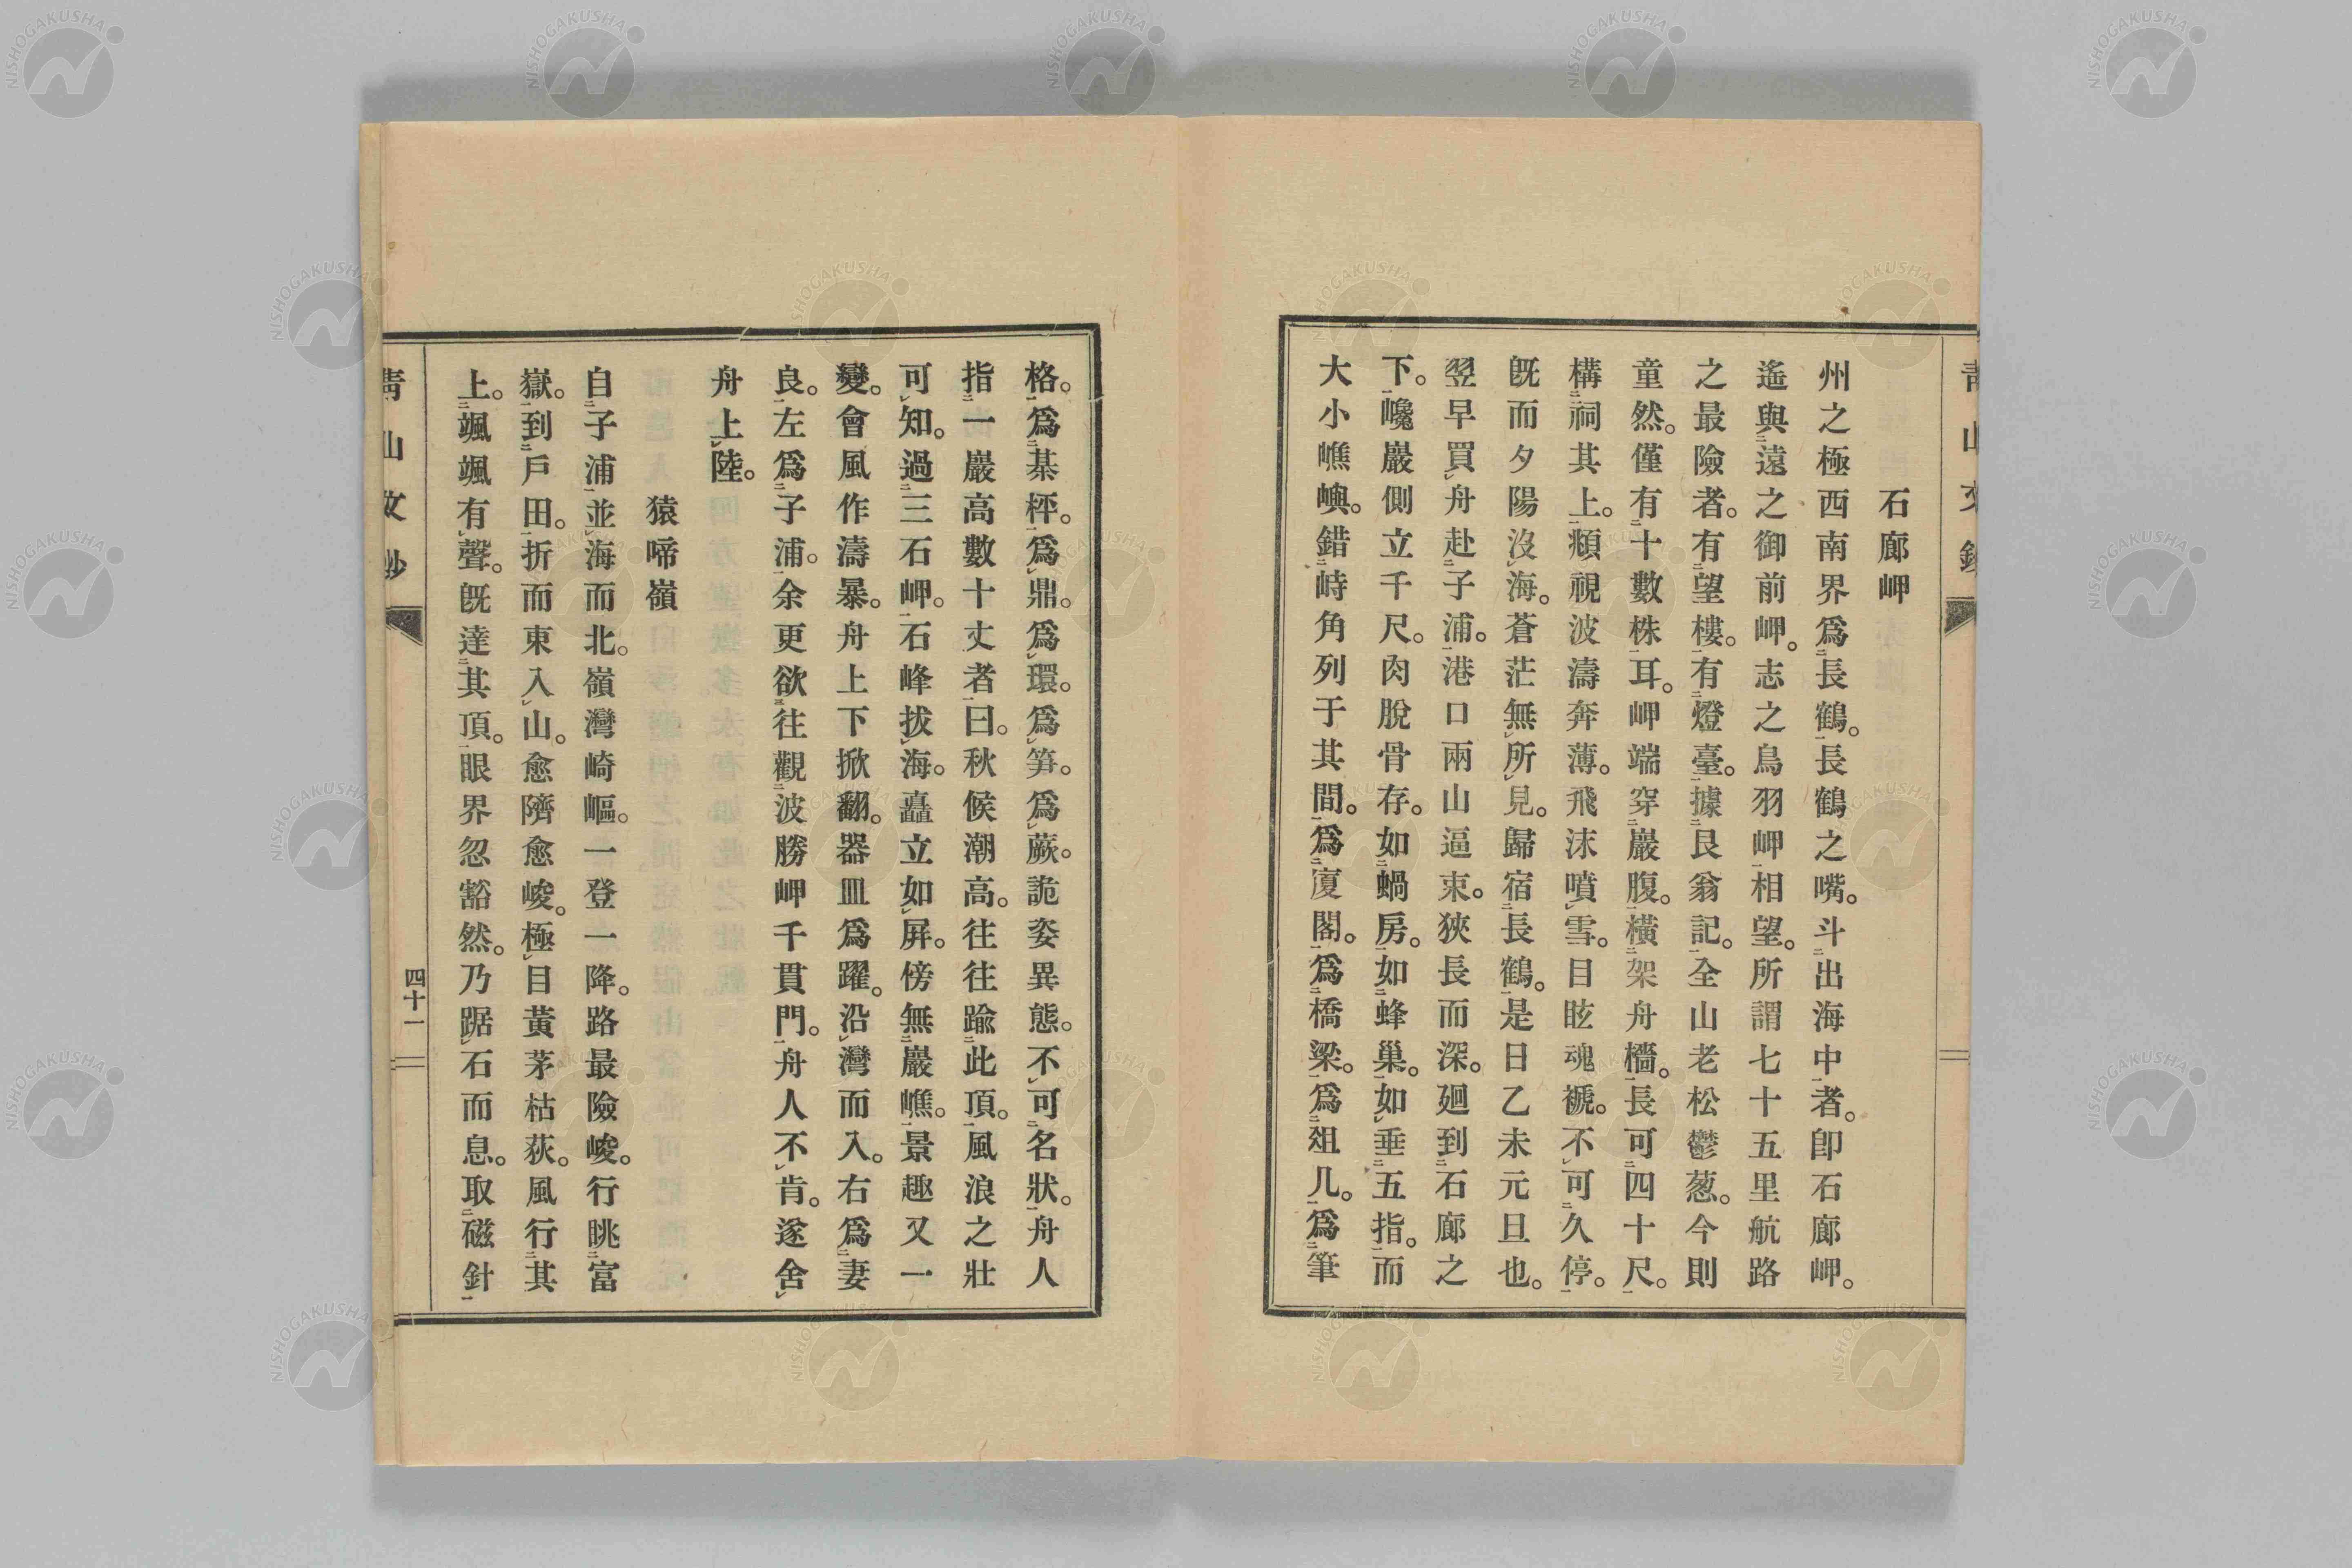 石廊岬
州之極西南界爲長鶴。長鶴之嘴。斗出海中者。卽石廊岬。
遙與遠之御前岬。志之鳥羽岬相望。所謂七十五里航路
之最險者。有望樓。有燈臺。據艮翁記。全山老松鬱葱。今則
童然。僅有十數株耳。岬端穿巖腹。橫架舟檣。長可四十尺。
構祠其上。頫視波濤奔薄。飛沫噴雪。目眩魂褫。不可久停。
旣而夕陽沒海。蒼茫無所見。歸宿長鶴。是日乙未元旦也。
翌早買舟赴子浦。港口兩山逼束。狹長而深。廻到石廊之
下。巉巖側立千尺。肉脫骨存。如蝸房。如蜂巢。如垂五指。而
大小嶕嶼。錯峙角列于其間。爲廈閣。爲橋梁。爲俎几。爲筆
格。爲棊枰。爲鼎。爲環。爲笋。爲蕨。詭姿異態。不可名狀。舟人
指一巖高數十丈者曰。秋候潮高。往往踰此頂。風浪之壯
可知。過三石岬。石峰拔海。矗立如屛。傍無巖嶕。景趣又一
變。會風作濤暴。舟上下掀翻。器皿爲躍。沿灣而入。右爲妻
良。左爲子浦。余更欲往觀波勝岬千貫門。舟人不肯。遂舍
舟上陸。
猿啼嶺
自子浦並海而北。嶺灣崎嶇。一登一降。路最險峻。行眺富
嶽。到戶田。折而東入山。愈隮愈峻。極目黃茅枯荻。風行其
上。颯颯有聲。旣達其頂。眼界忽豁然。乃踞石而息。取磁針
靑山文鈔
四十一
NISHOGAKUSHA